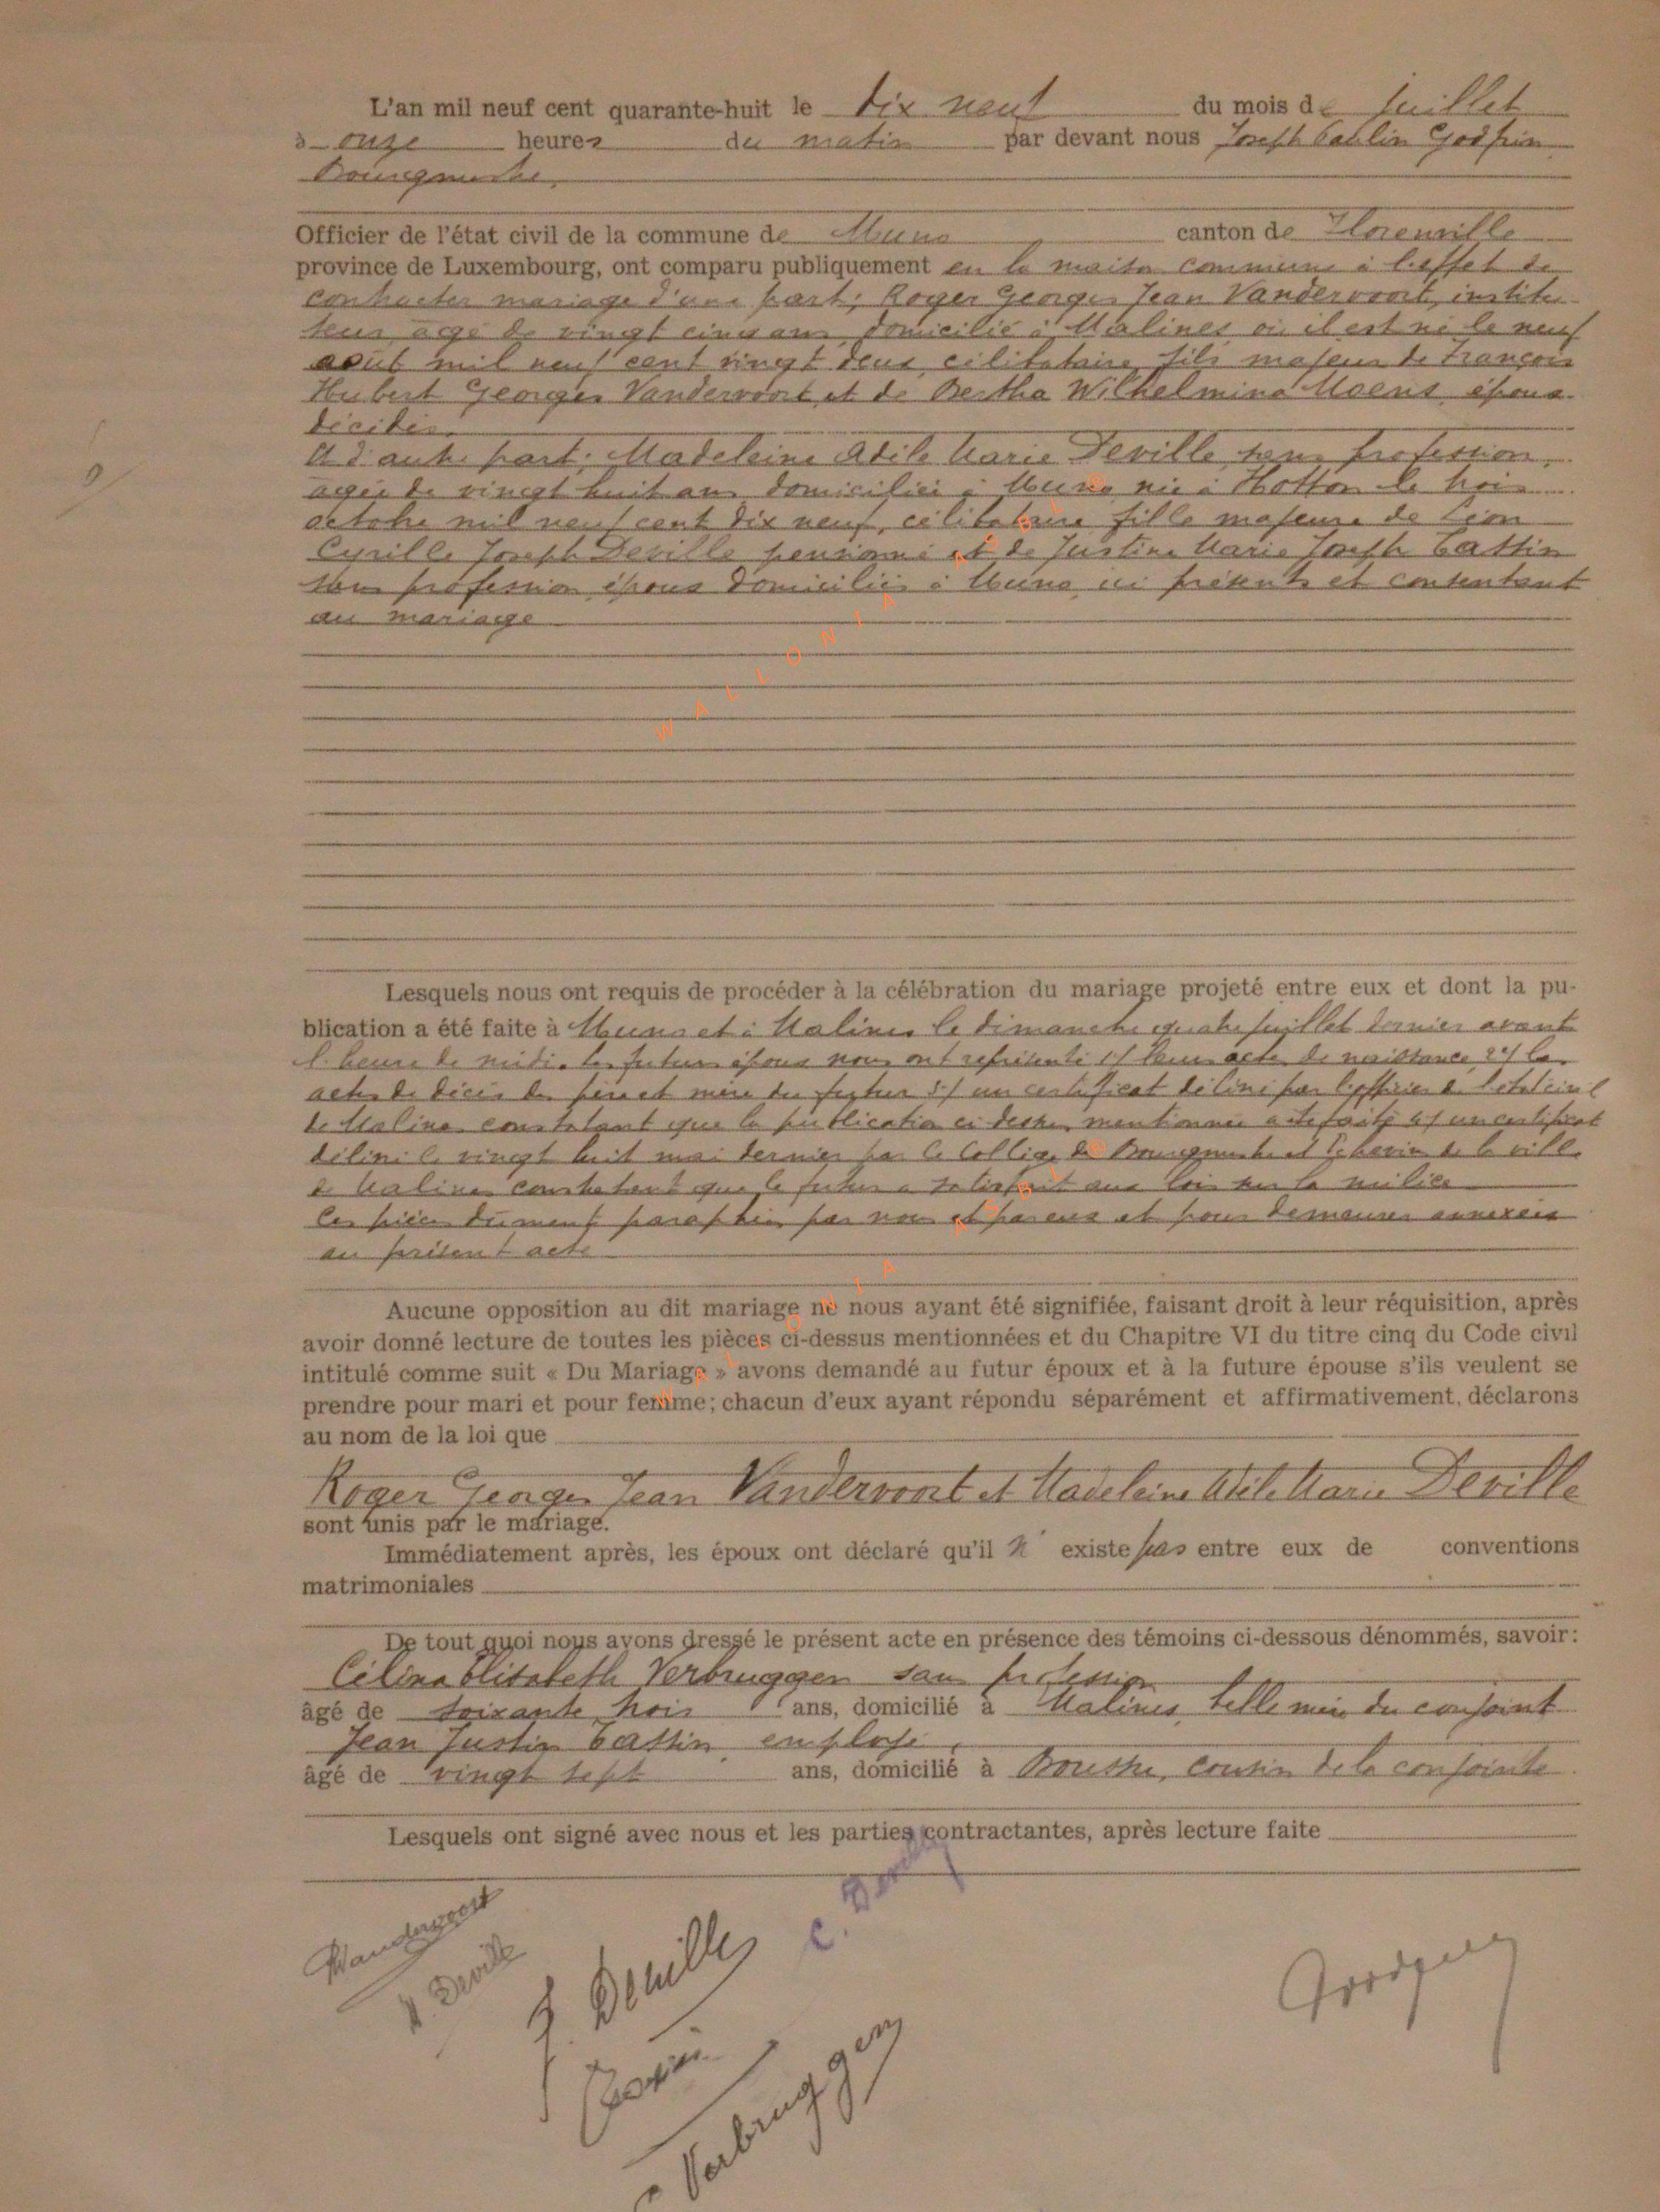 L'an mil neuf cent quarante-huit le dix neuf du mois de juillet
à onze heures du matin par devant nous Joseph Paulin Godfrin
Bourgmestre,
Officier de l'état civil de la commune de Muno canton de Florenville
province de Luxembourg, ont comparu publiquement en la maison commune à l'effet de
contracter mariage d'une part; Roger Georges Jean Vandervoort, institu-
teur âgé de vingt cinq ans domicilié à Malines où il est né le neuf
août mil neuf cent vingt deux célibataire fils majeur de François
Hubert Georges Vandervoort et de Bertha Wilhelmina Moens époux
décédés.
Et d'autre part; Madeleine Adile Marie Deville sans profession,
âgée de vingt huit ans domiciliée à Muno née à Hotton le trois
octobre mil neuf cent dix neuf, célibataire fille majeure de Léon
Cyrille Joseph Deville pensionné et de Justine Marie Joseph Cassin
sans profession époux domiciliés à Muno ici présents et consentant
au mariage
WALLONIA ASBL
Lesquels nous ont requis de procéder à la célébration du mariage projeté entre eux et dont la pu-
blication a été faite à Muno et à Malines le dimanche quatre juillet dernier avant
l'heure de midi. Les futurs époux nous ont représenté 1°/ leurs acte de naissance 2°/ les
actes de décès des père et mère du futur 3°/ un certificat délivré par l'officier de l'état civil
de Malines constatant que la publication ci dessus mentionnée a été faite 4°/ un certificat
délivré le vingt huit mai dernier par le Collège de Bourgmestre et Echevins de la ville
de Malines constatant que le futur a satisfait aux lois sur la milice
Ces pièces dûment paraphées par nous et par eux et pour demeurer annexées
au présent acte
Aucune opposition au dit mariage ne nous ayant été signifiée, faisant droit à leur réquisition, après
avoir donné lecture de toutes les pièces ci-dessus mentionnées et du Chapitre VI du titre cinq du Code civil
intitulé comme suit « Du Mariage » avons demandé au futur époux et à la future épouse s'ils veulent se
prendre pour mari et pour femme; chacun d'eux ayant répondu séparément et affirmativement, déclarons
au nom de la loi que
Roger Georges Jean Vandervoort et Madeleine Adile Marie Deville
sont unis par le mariage.
Immédiatement après, les époux ont déclaré qu'il n' existe pas entre eux de conventions
matrimoniales
De tout quoi nous avons dressé le présent acte en présence des témoins ci-dessous dénommés, savoir:
Célina Elisabeth Verbruggen sans profession
âgé de soixante trois ans, domicilié à Malines, belle mère du conjoint
Jean Justin Cassin, employé,
âgé de vingt sept ans, domicilié à cousin de la conjointe
Lesquels ont signé avec nous et les parties contractantes, après lecture faite
Vandervoort
Deville
J. Deville
C. Deville
Cassin
Verbruggen